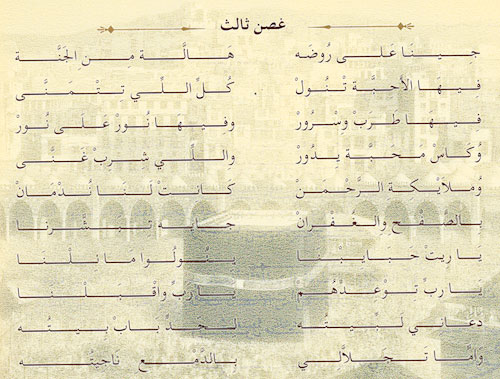 غصن ثالث
جينَا عَلَى رُوضَه هَالَّة من الجَنَّة
فيهَا الأحبَّة تْنُولْ كُلّ اللِّي تتْمَنَّى
فيهَا طَرَبْ وِسْرُورْ وفيهَا نُورْ عَلَى نُورْ
وُكَاسْ محَبَّة يدُورْ واللِّي شربْ غَنَّى
وُملَايكة الرَّحْمَنْ كَانتْ لنَا نُدْمَانْ
بالصَّفْح والغُفْرَانْ جايه تبشَّرنَا
يَا ريتْ حبايبْنَا ينُولُوا مَا نلْنَا
يَا ربّ تُوعدْهُمْ يَا رَبّ واقْبَلْنَا
دَعَاني لَبّيتُه لحَدّ بَابْ بيتُه
وامَّا تجَلَّالي بالدَّمْع ناجيتُه